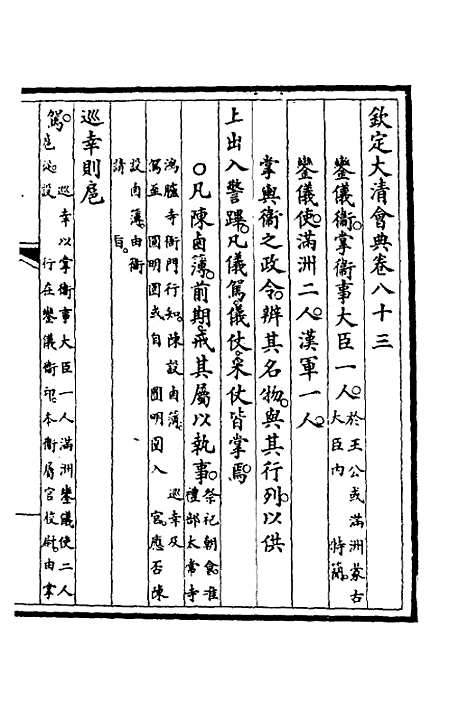 欽定大清會典卷八十三
鑾儀衞掌衞事大臣一人
於王公或滿洲蒙古
大臣内 特簡
鑾儀使滿洲二人漢軍一人
掌輿衞之政令辨其名物與其行列以供
上出入警蹕凡儀駕儀仗采仗皆掌焉
○凡陳鹵簿前期戒其屬以執事
祭祀朝會准
禮部太常寺
鴻臚寺衙門行知陳設鹵簿 巡幸及
駕至 圓明園或自 圓明園入 宮應否陳
設鹵簿由衞
請 旨
巡幸則扈
駕
巡幸以掌衞事大臣一人滿洲鑾儀使二人
扈從設 行在鑾儀衞印本衞屬官校尉由掌